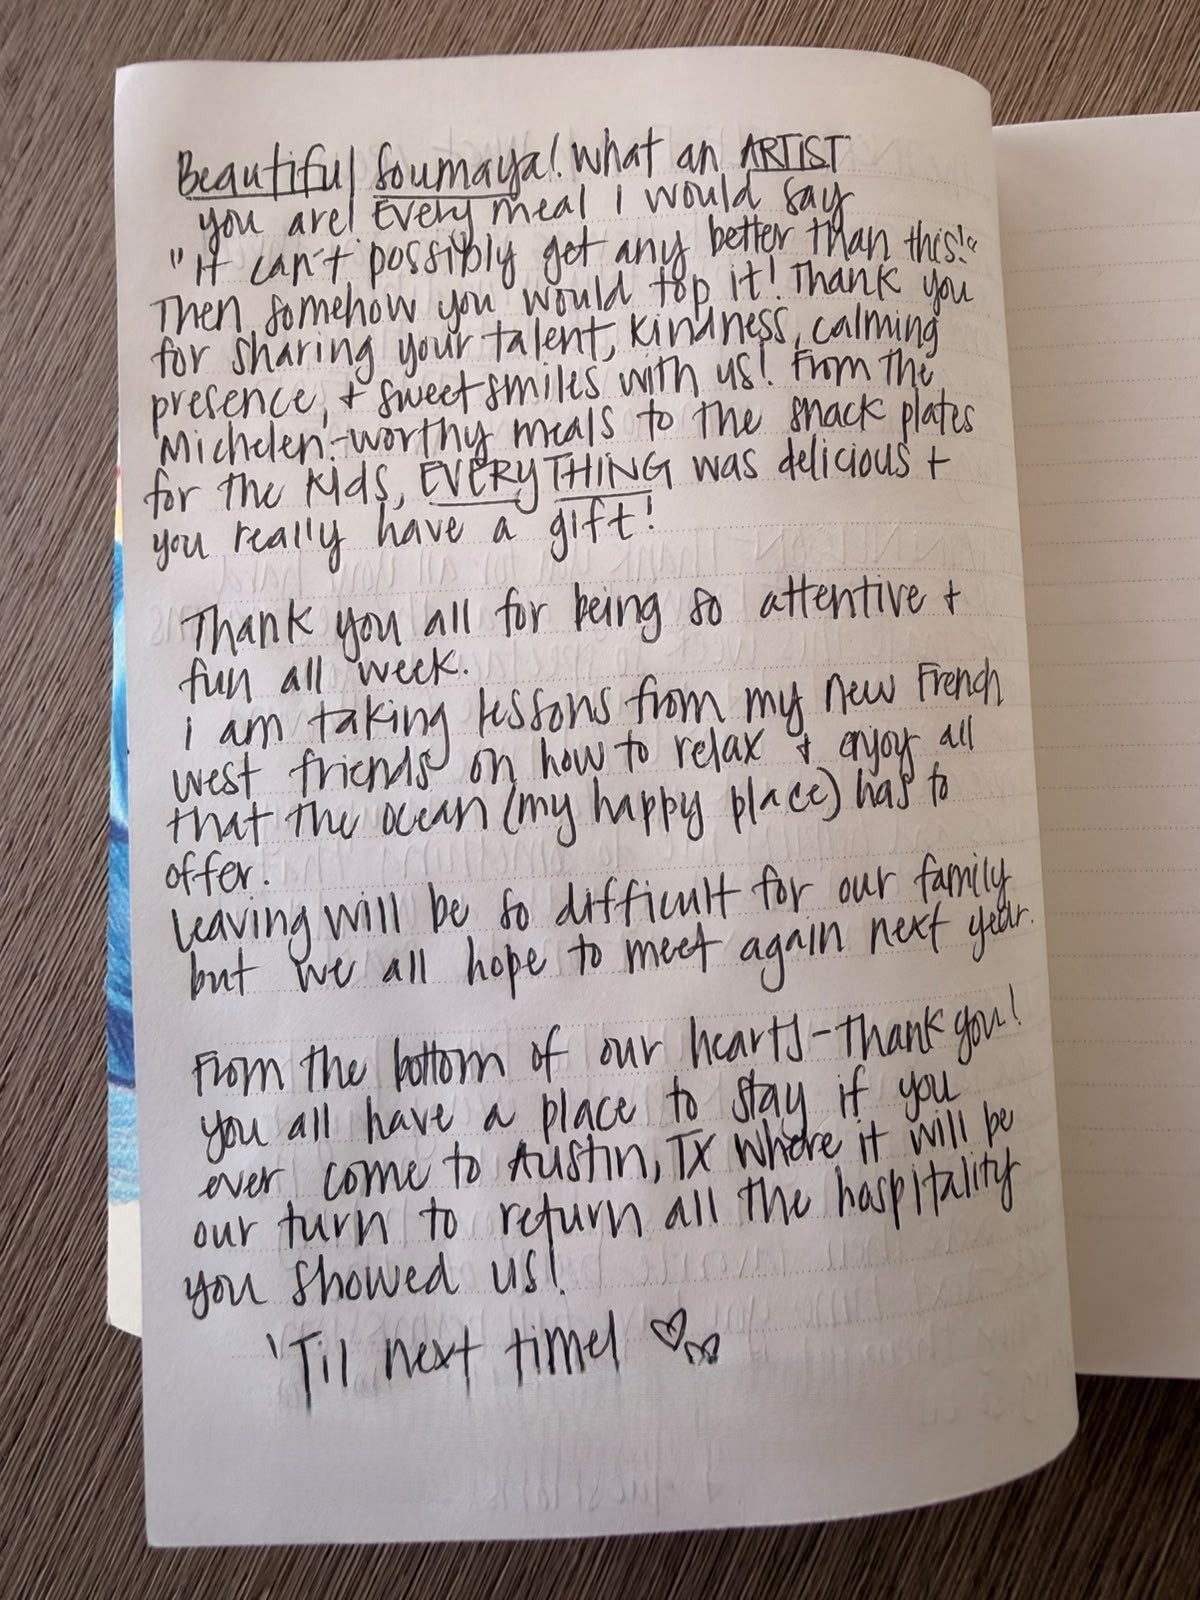 Beautiful Soumaya! What an ARTIST
you are! Every meal I would say
"it can't possibly get any better than this!"
Then somehow you would top it! Thank you
for sharing your talent, kindness, calming
presence, + sweet smiles with us! From the
Michelen-worthy meals to the snack plates
for the kids, EVERYTHING was delicious +
you really have a gift!
Thank you all for being so attentive +
fun all week.
I am taking lessons from my new French
West friends on how to relax + enjoy all
that the ocean (my happy place) has to
offer.
Leaving will be so difficult for our family
but we all hope to meet again next year.
From the bottom of our hearts - thank you!
You all have a place to stay if you
ever come to Austin, TX where it will be
our turn to return all the hospitality
you showed us!
'Til next time!